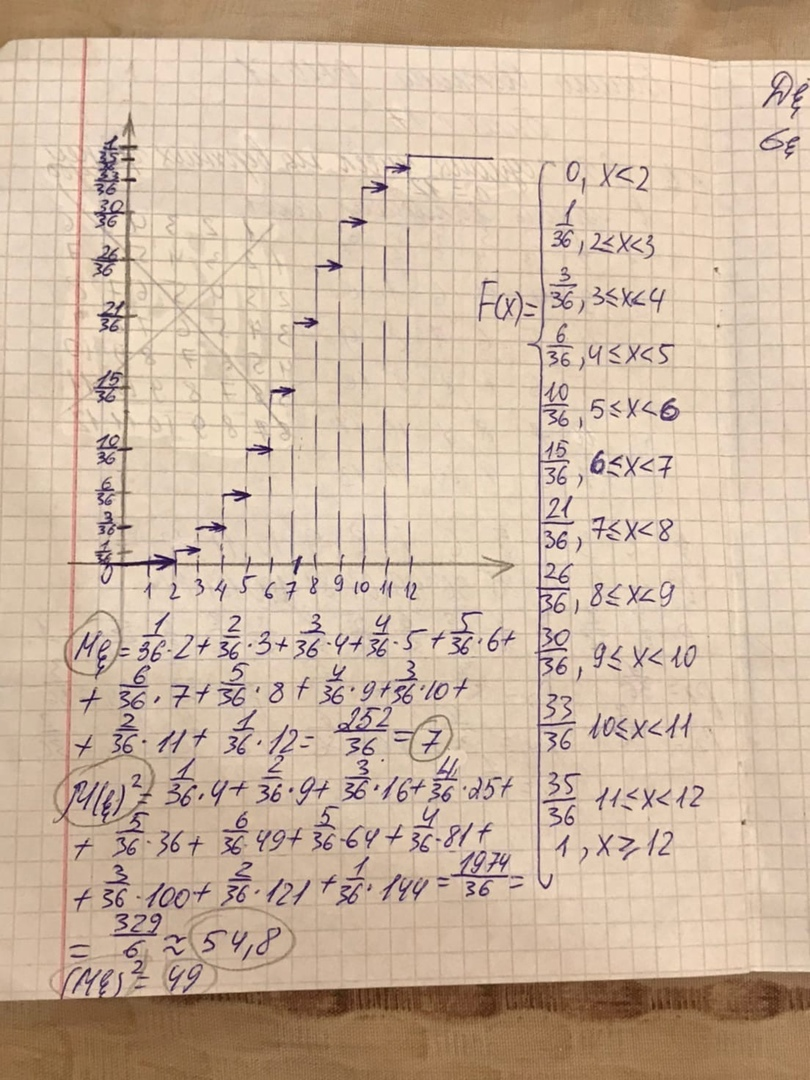 Dξ
σξ
1
35/36
33/36
30/36
26/36
21/36
15/36
10/36
6/36
3/36
1/36
0 1 2 3 4 5 6 7 8 9 10 11 12
F(x)=
0, x<2
1/36, 2≤x<3
3/36, 3≤x<4
6/36, 4≤x<5
10/36, 5≤x<6
15/36, 6≤x<7
21/36, 7≤x<8
26/36, 8≤x<9
30/36, 9≤x<10
33/36 10≤x<11
35/36 11≤x<12
1, x≥12
Mξ = 1/36·2+ 2/36·3+ 3/36·4+ 4/36·5 + 5/36·6+
+ 6/36·7+ 5/36·8 + 4/36·9+ 3/36·10+
+ 2/36·11+ 1/36·12= 252/36 = 7
M(ξ)²= 1/36·4+ 2/36·9+ 3/36·16+ 4/36·25+
+ 5/36·36+ 6/36·49+ 5/36·64+ 4/36·81+
+ 3/36·100+ 2/36·121 + 1/36·144= 1974/36 =
= 329/6 ≈ 54,8
(Mξ)²= 49